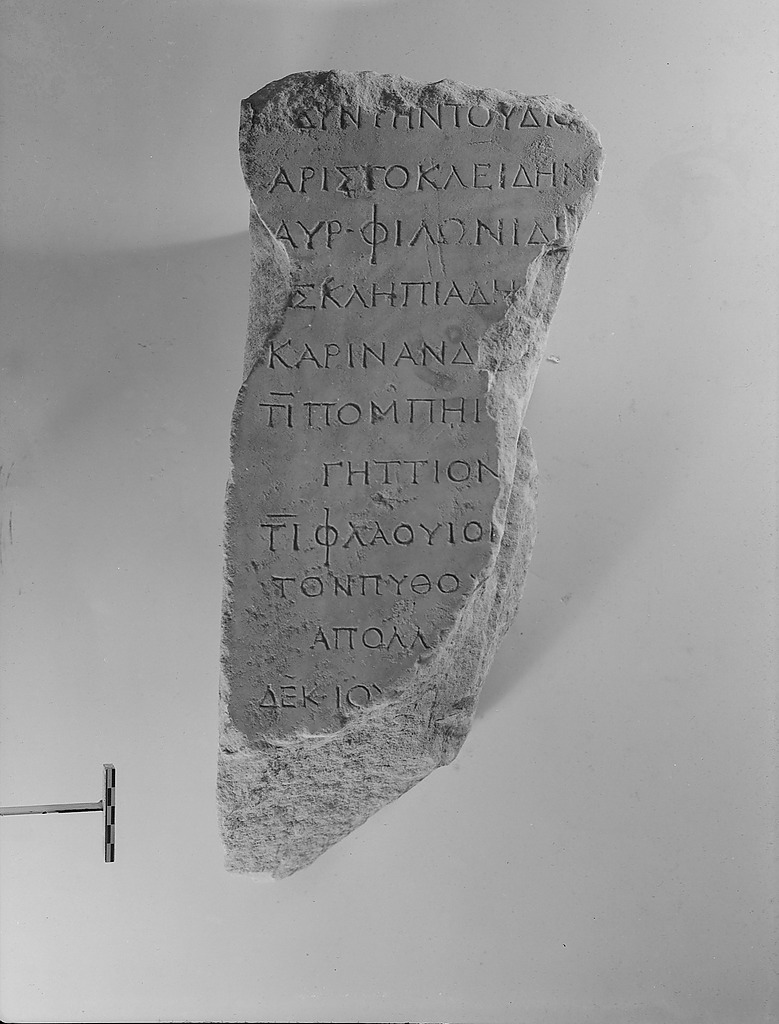 ΔΥΝΤΗΝΤΟΥΔΙ
ΑΡΙΣΤΟΚΛΕΙΔΗΝ
ΑΥΡ·ΦΙΛΩΝΙΔ
ΣΚΛΗΠΙΑΔΗ
ΚΑΡΙΝΑΝΔ
ΤΙ ΠΟΜΠΗΙ
ΓΗΤΤΙΟΝ
ΤΙ ΦΛΑΟΥΙΟΝ
ΤΟΝΠΥΘΟΥ
ΑΠΟΛΛ
ΔΕΚ·ΙΟΥ